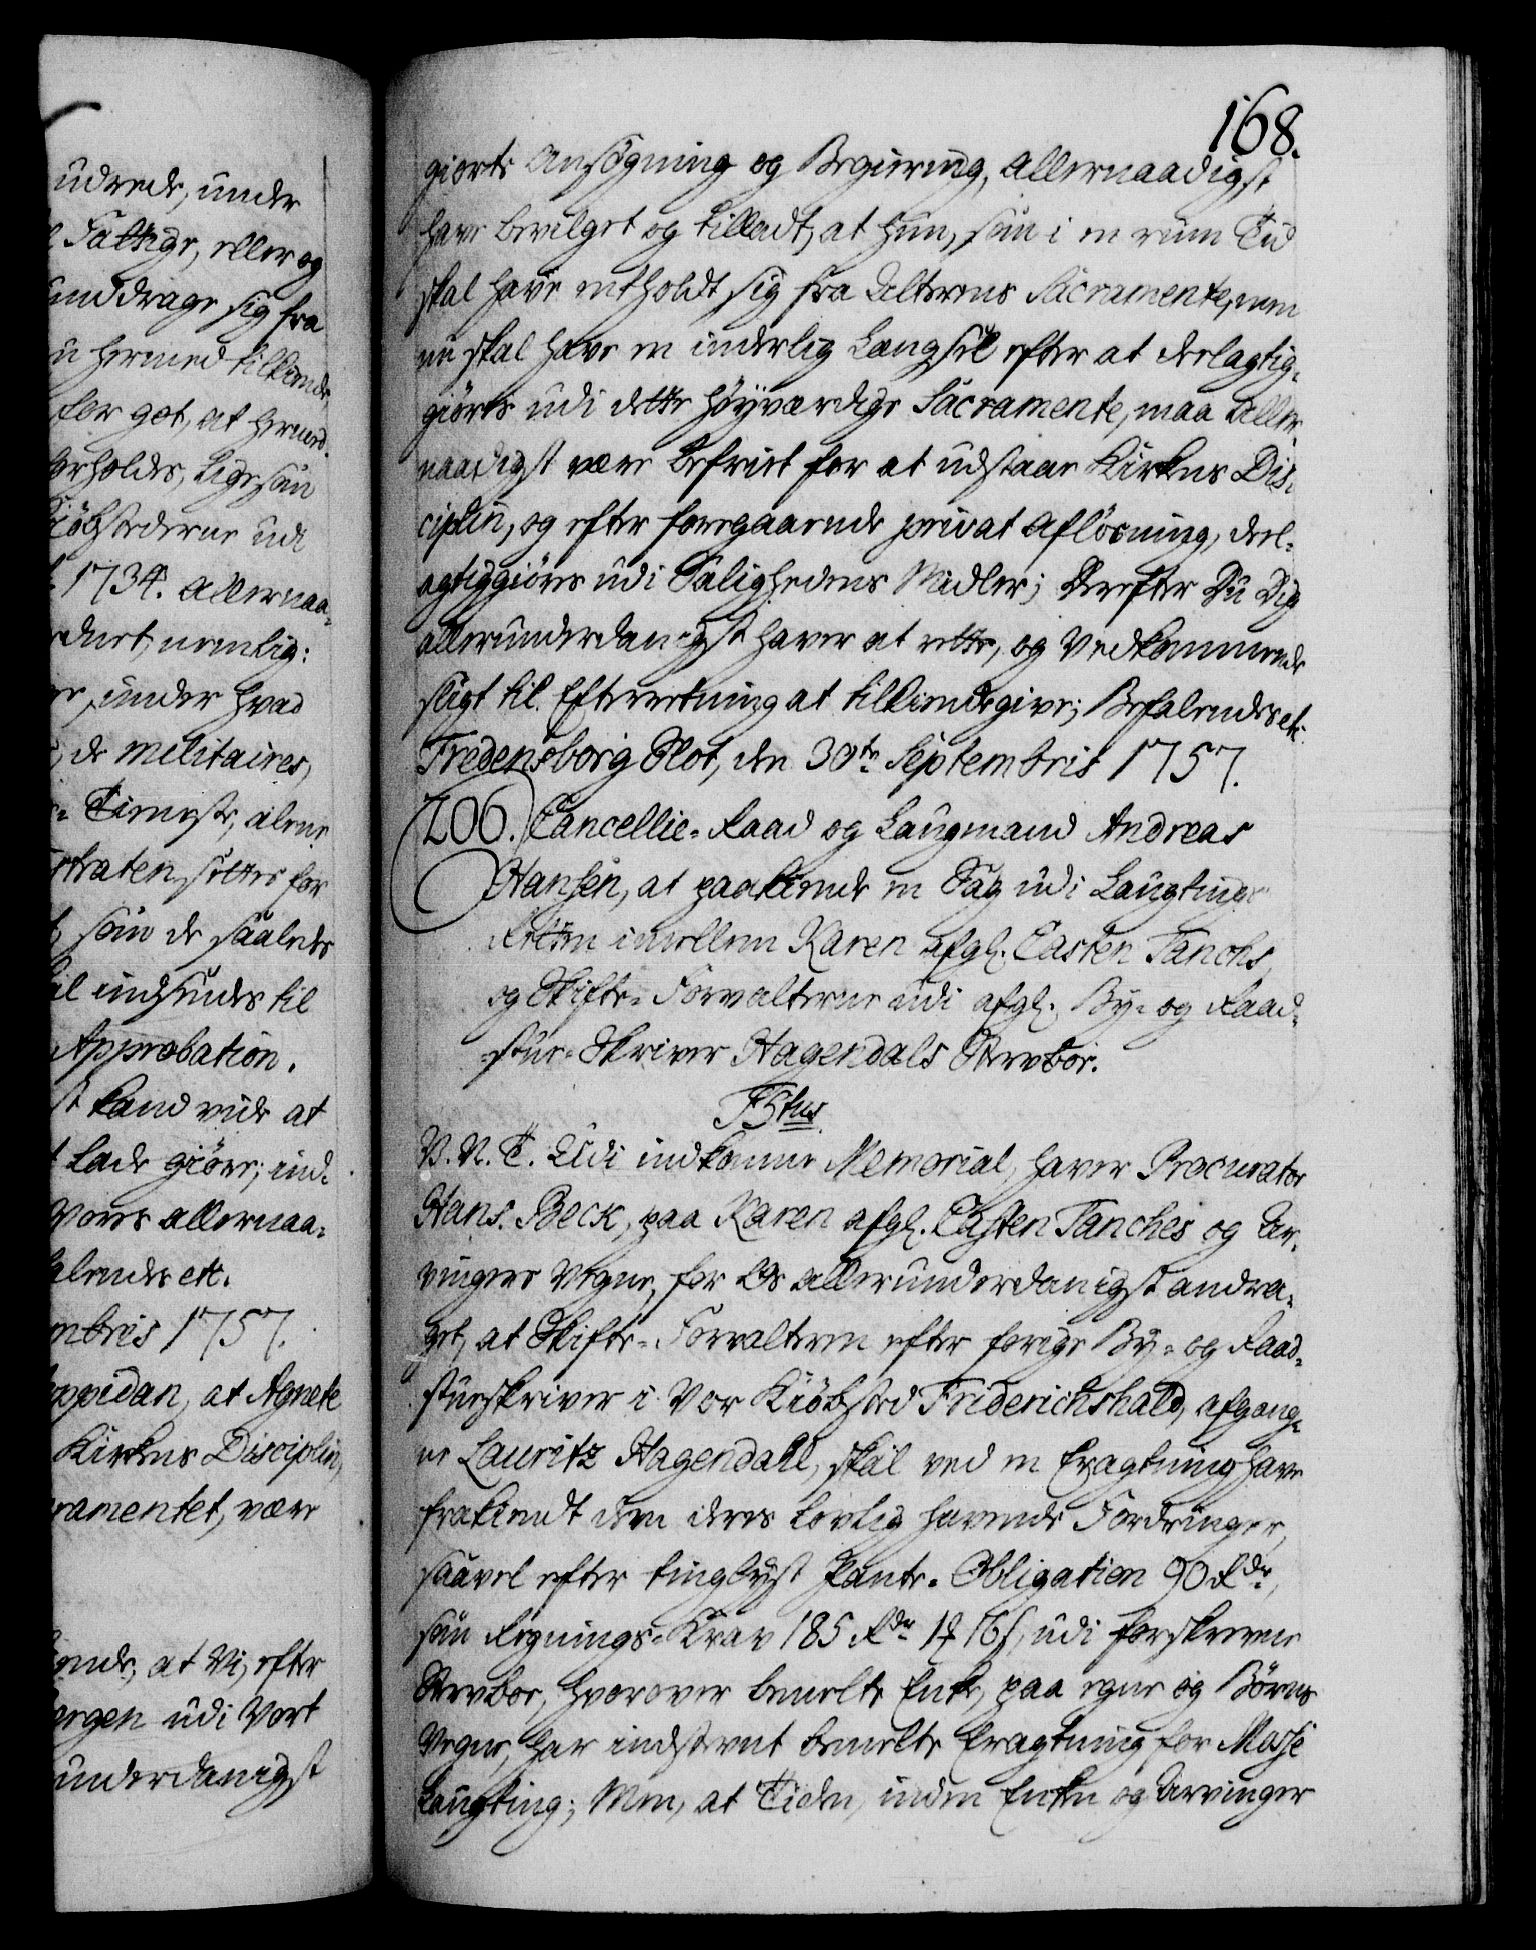 udrede, under
Fattige, eller og
unddrage sig fra
hermed tilkiende,
for got, at hermed
forholdes, ligesom
Kiöbstederne udi
1734. allernaa-
nemlig:
under hvad
de militaires,
Tieneste, alene
settes for
som de saaledes
indsendes til
Approbation.
kand vide at
lade giöre; ind-
Vores allernaa-
etc.
1757.
at Agnete
Kirkens Disciplin,
være
at Vi, efter
udi Vort
underdanigst
168.
giorte Ansögning og Begiering, Allernaadigst
have bevilget og tilladt, at hun, som i en rum Tid
skal have entholdt sig fra Alterens Sacramente, men
nu skal have en inderlig Længsel efter at deelagtig-
giöres udi dette höyværdige Sacramente, maa Aller-
naadigst være befriet for at udstaae Kirkens Dis-
ciplin, og efter foregaaende privat Aflösning, deel-
agtiggiöres udi Salighedens Midler; Derefter Du Dig
allerunderdanigst haver at rette, og Vedkommende
sligt til Efterretning at tilkiendegive; Befalendes etc.
Fredensborg Slot, den 30te Septembris 1757.
206. Cancellie-Raad og Laugmand Andreas
Hansen, at paakiende en Sag udi Laugtings
Retten imellem Karen afgl. Casten Tanchs
og Skifte-Forvalterne udi afgl. By- og Raad-
stue-Skriver Hagendals Stervboe.
F5tus
V. N. T. Udi indkomne Memorial, haver Procurator
Hans Beck, paa Karen afgl. Casten Tanches og Ar-
vingers Vegne, for Os allerunderdanigst andra-
get, at Skifte-Forvalteren efter forige By- og Raad-
stueskriver i Vor Kiöbsted Friderichshald, afgang-
ne Lauritz Hagendahl, skal ved en Eragtning have
frakiendt dem deres lovlig havende Fordringer,
saavel efter tinglyst Pante-Obligation 90 Rdr,
som Regnings-Krav 185 Rdr 1 ₰ 16 s, udi forskrevne
Stervboe, hvorover bemelte Enke, paa egne og Börns
Vegne, har indstevnt bemelte Eragtning for Mosse
Laugting; Men, at Tiden, inden Enken og Arvinger